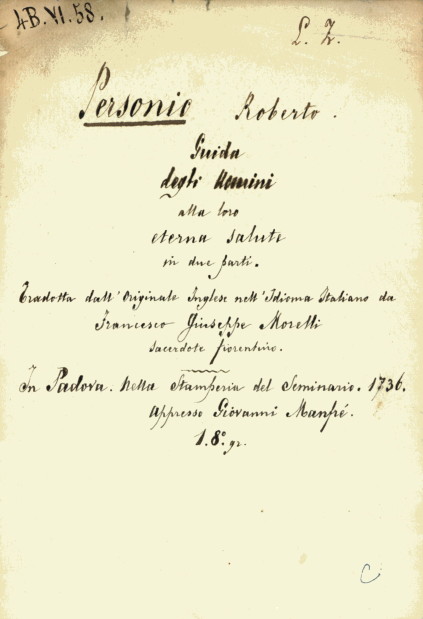 4B.VI.58.
L. Z.
Personio Roberto.
Guida
degli Uomini
alla loro
eterna salute
in due parti.
Tradotta dall'Originale Inglese nell'Idioma Italiano da
Francesco Giuseppe Moretti
sacerdote fiorentino.
In Padova. Nella Stamperia del Seminario. 1736.
appresso Giovanni Manfré.
1. 8.° gr.
C